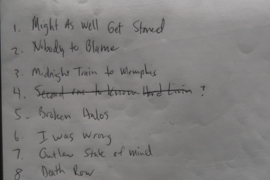 1. Might As Well Get Stoned
2. Nobody to Blame
3. Midnight Train to Memphis
4. Second One to Know Hard Livin ?
5. Broken Halos
6. I was wrong
7. Outlaw State of mind
8 Death Row